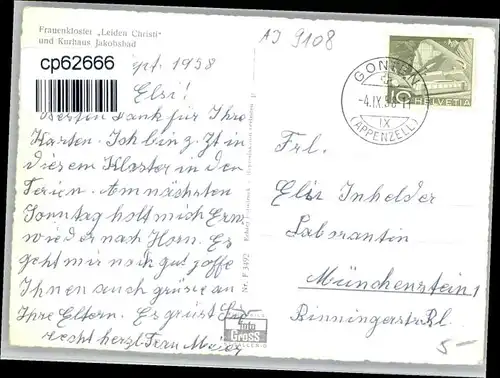 Frauenkloster „Leiden Christi“
und Kurhaus Jakobsbad
cp62666
ept. 1958
Elsi!
Besten Dank für Ihre
Karten. Ich bin z. Zt in
diesem Kloster in den
Ferien. Am nächsten
Sonntag holt mich Erw.
wieder nach Horn. Es
geht mir noch gut hoffe
Ihnen auch grüsse an
Ihre Eltern. Es grüst Sie
recht herzl. Fern Meier
Nr. F 3492
Foto
Gross
ST. GALLEN
AJ 9108
GONTEN
-4.IX.58-11
IX
(APPENZELL)
10 HELVETIA
Frl.
Elsi Inhelder
Laborantin
Münchenstein 1
Binningerstr. Bl.
5-